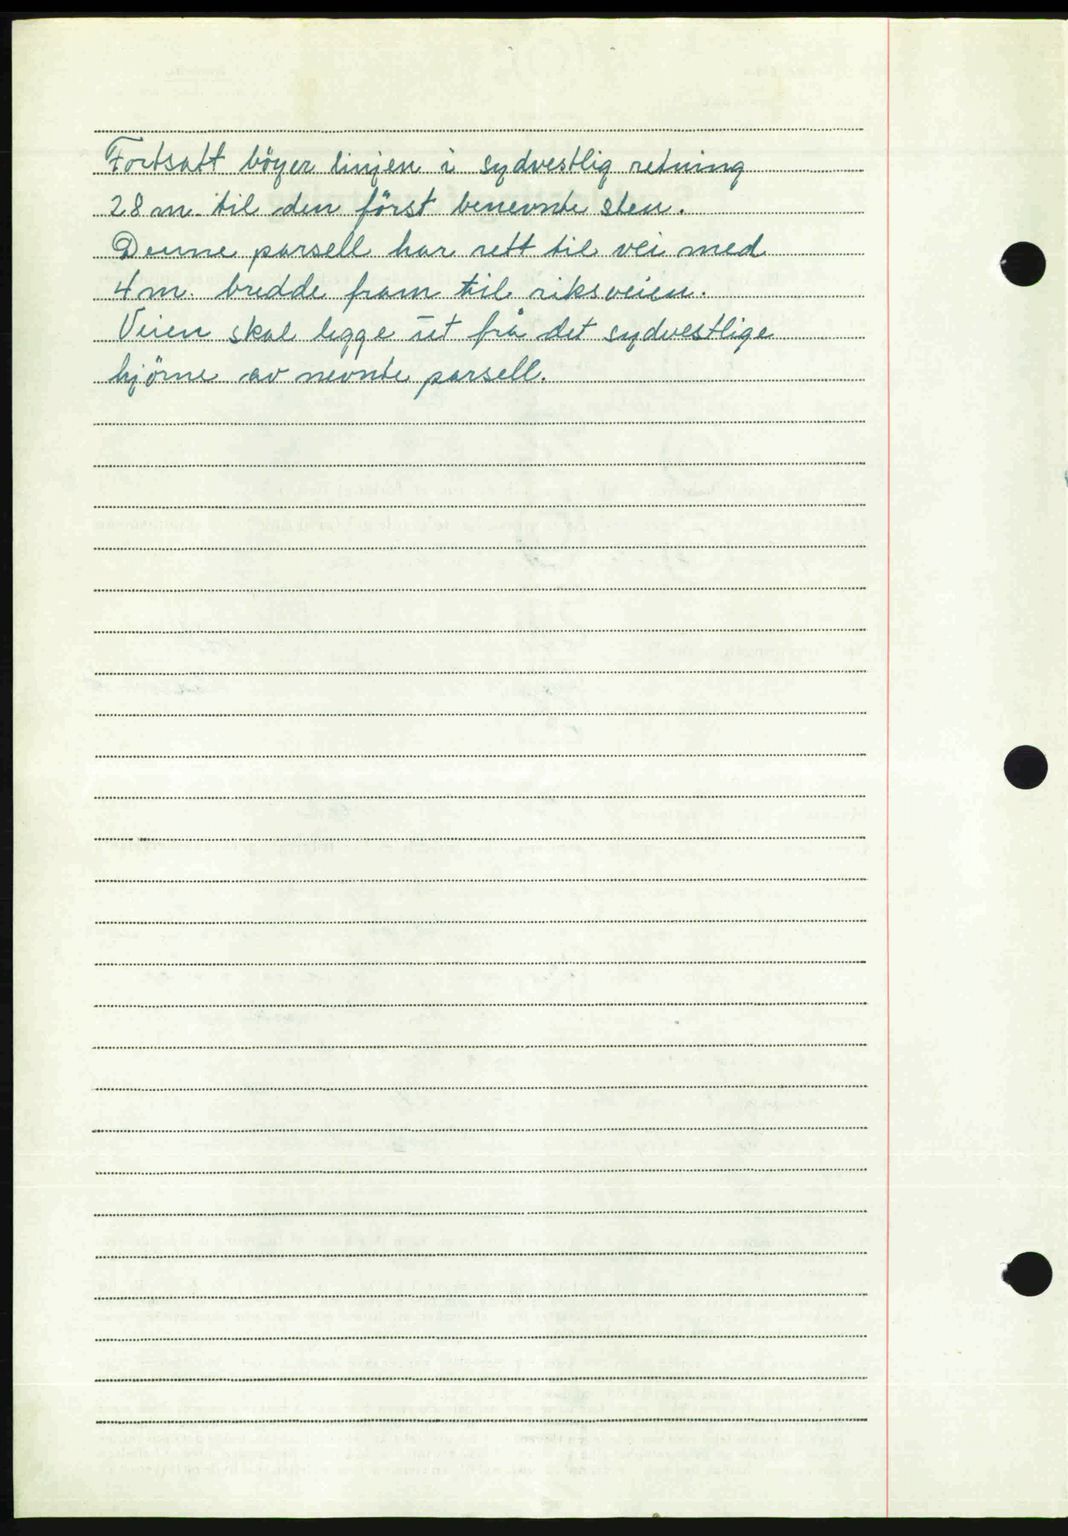 Fortsatt böyer linjen i sydvestlig retning
28 m. til den först benevnte sten.
Denne parsell har rett til vei med
4 m. bredde fram til riksveien.
Veien skal ligge ut frå det sydvestlige
hjörne av nevnte parsell.